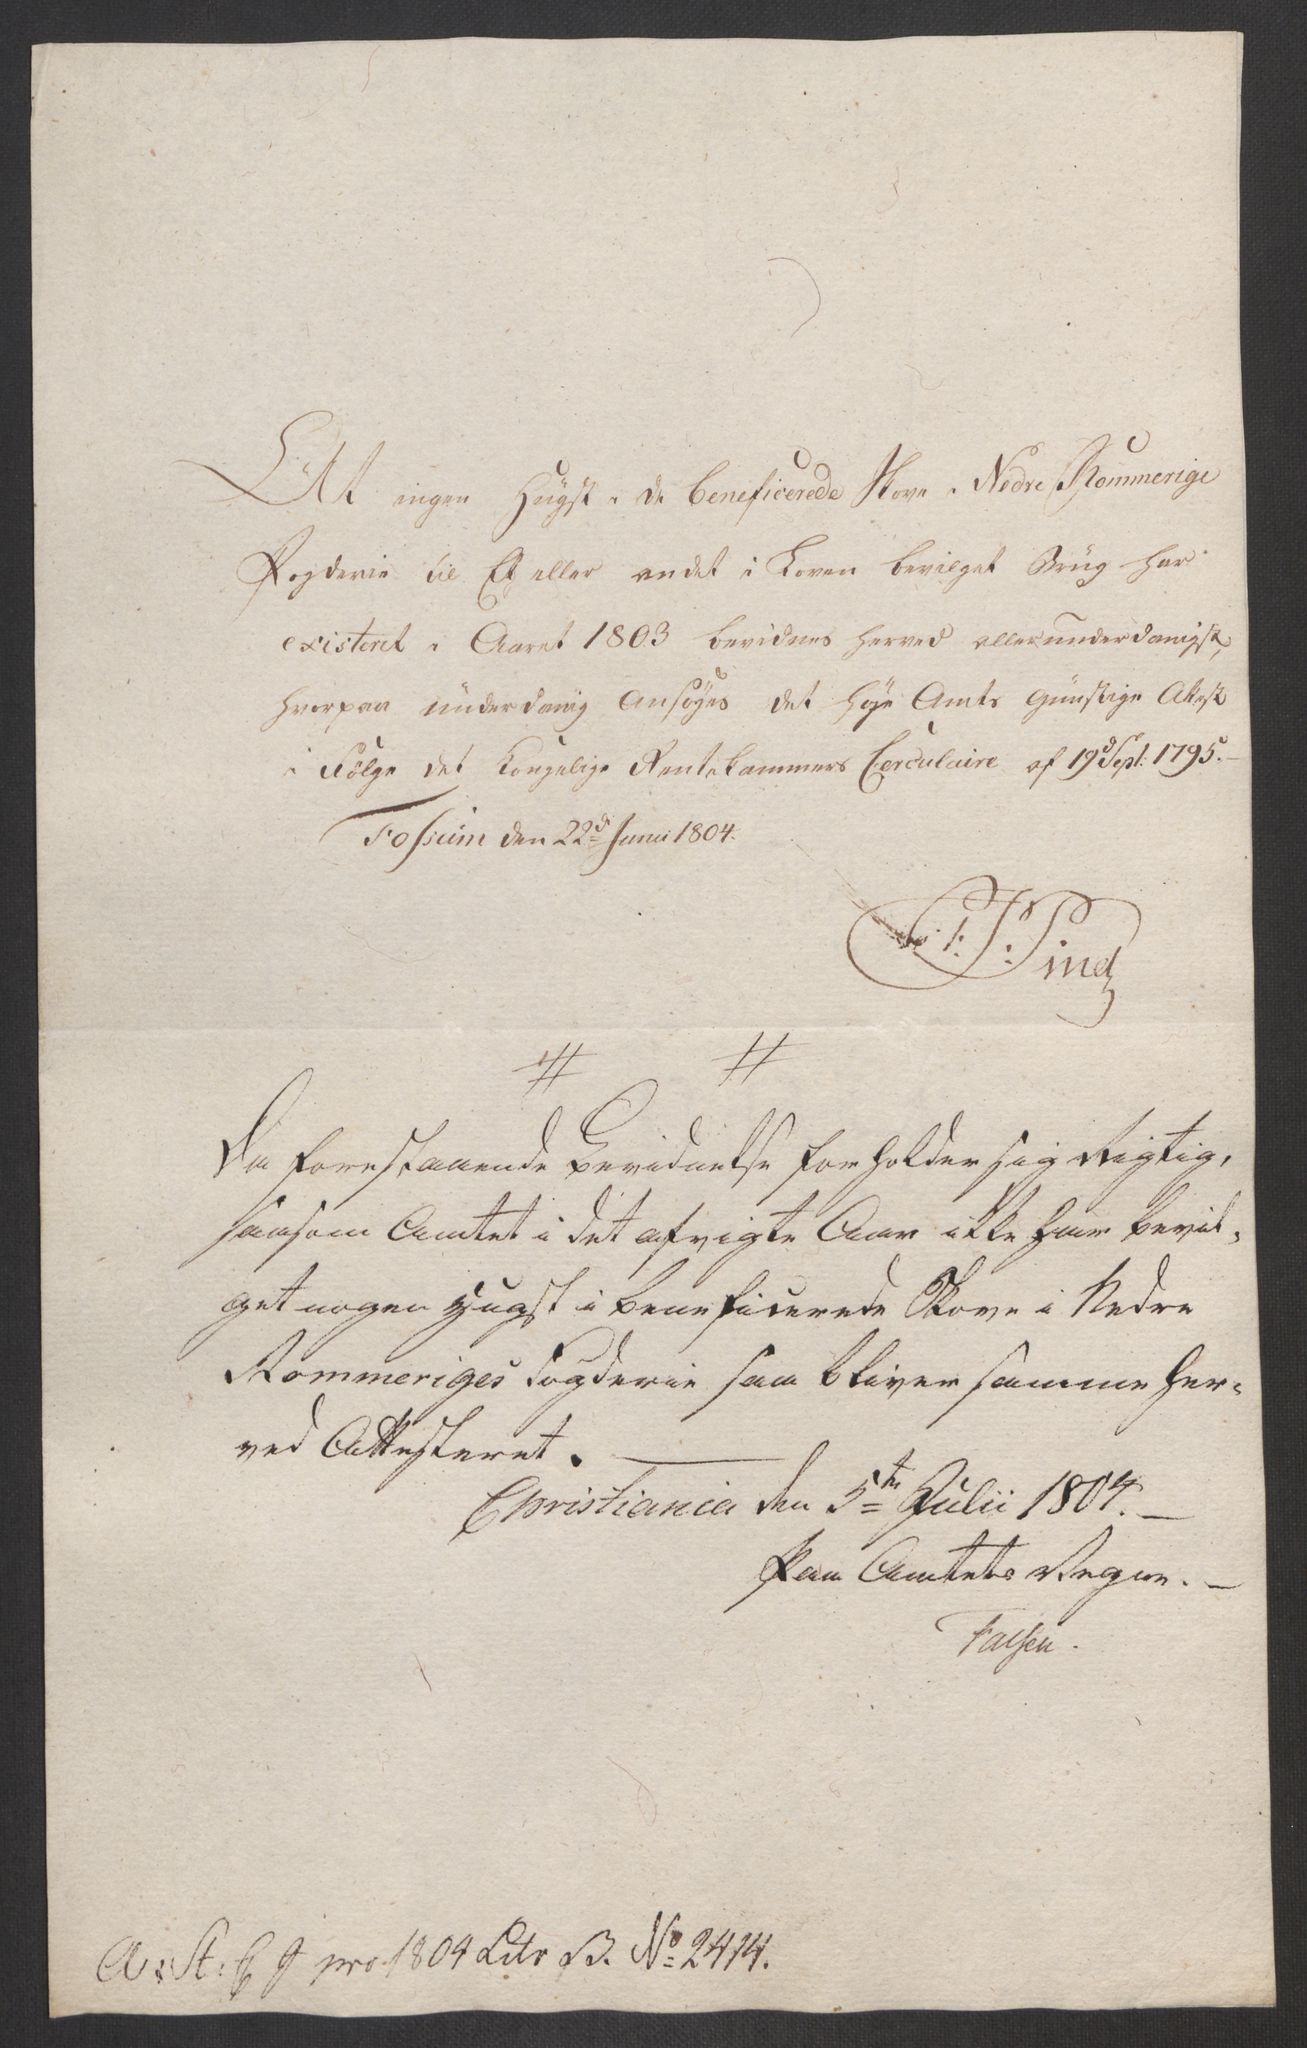 At ingen Hugst i de beneficerede Skove i Nedre Rommerige
Fogderie til Et eller andet i Loven bevilget Brug har
existeret i Aaret 1803 bevidnes herved allerunderdanigst,
hvorpaa underdanig ansøges det høje Amts gunstige Attest
i Følge det Kongelige Rentekammers Circulaire af 19d Sept: 1795.-
Fossum den 22de Junii 1804.
Pind
Da forestaaende Bevidnelse forholder sig Rigtig,
saasom Amtet i det afvigte Aar ikke har bevil-
get nogen Hugst i beneficerede Skove i Nedre
Rommeriges Fogderie saa bliver samme her-
ved Attesteret.
Christiania den 5te Julii 1804.-
Paa Amtets Vegne.-
Falsen.
pro 1804 Litr B. No 2414.